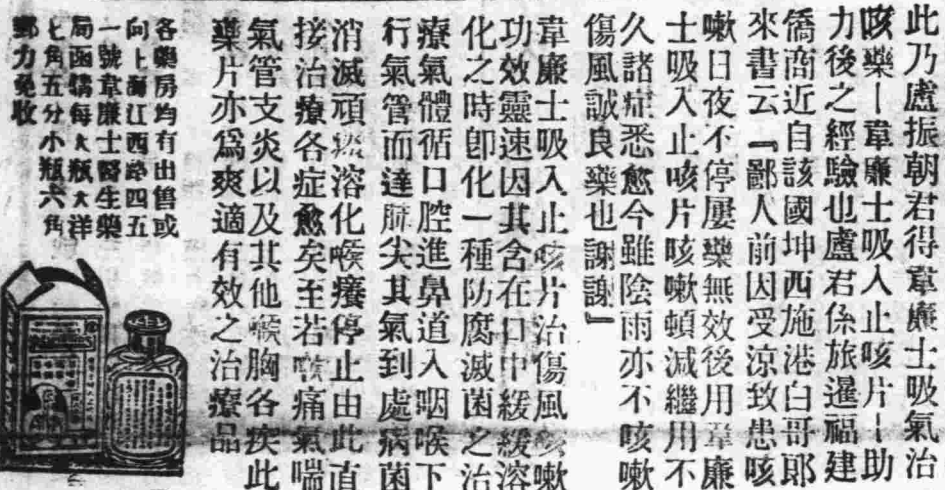 此乃盧振朝君得韋廉士吸氣治
咳藥—韋廉士吸入止咳片—助
力後之經驗也盧君係旅暹福建
僑商近自該國坤西施港白哥郎
來書云『鄙人前因受涼致患咳
嗽日夜不停屢藥無效後用韋廉
士吸入止咳片咳嗽頓減繼用不
久諸症悉愈今雖陰雨亦不咳嗽
傷風誠良藥也謝謝』
韋廉士吸入止咳片治傷風咳嗽
功效靈速因其含在口中緩緩溶
化之時卽化一種防腐滅菌之治
療氣體循口腔進鼻道入咽喉下
行氣管而達肺尖其氣到處病菌
消滅頑痰溶化喉癢停止由此直
接治療各症愈矣至若喉痛氣喘
氣管支炎以及其他喉胸各疾此
藥片亦爲爽適有效之治療品
各藥房均有出售或
向上海江西路四五
一號韋廉士醫生藥
局函購每大瓶大洋
七角五分小瓶六角
郵力免收